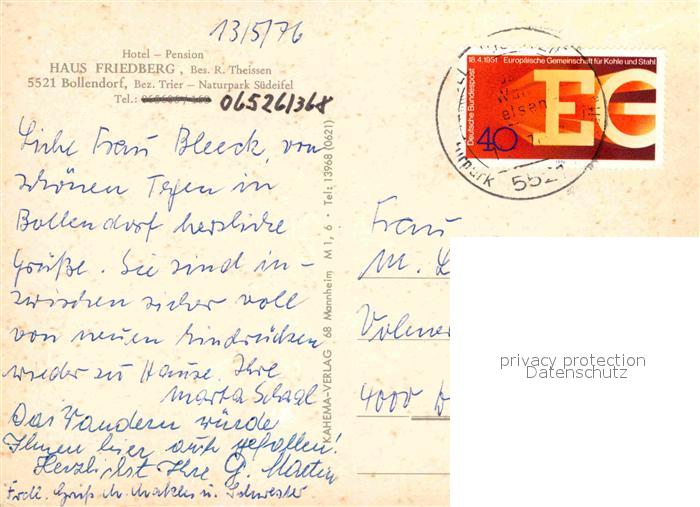 13/5/76
Hotel – Pension
HAUS FRIEDBERG, Bes. R. Theissen
5521 Bollendorf, Bez. Trier – Naturpark Südeifel
Tel.: 06526/368
Liebe Frau Bleeck, von
schönen Tagen in
Bollendorf herzliche
Grüße. Sie sind in-
zwischen sicher voll
von neuen Eindrücken
wieder zu Hause. Ihre
Marta Schaal
Das Wandern würde
Ihnen hier auch gefallen!
Herzlichst Ihre G. Martin
Frdl. Gruß u. Schwester
KAHEMA-VERLAG 68 Mannheim M 1, 6 · Tel: 13968 (0621)
18.4.1951 Europäische Gemeinschaft für Kohle und Stahl
Deutsche Bundespost
EG
40
5521
Frau
M.
4000
privacy protection
Datenschutz